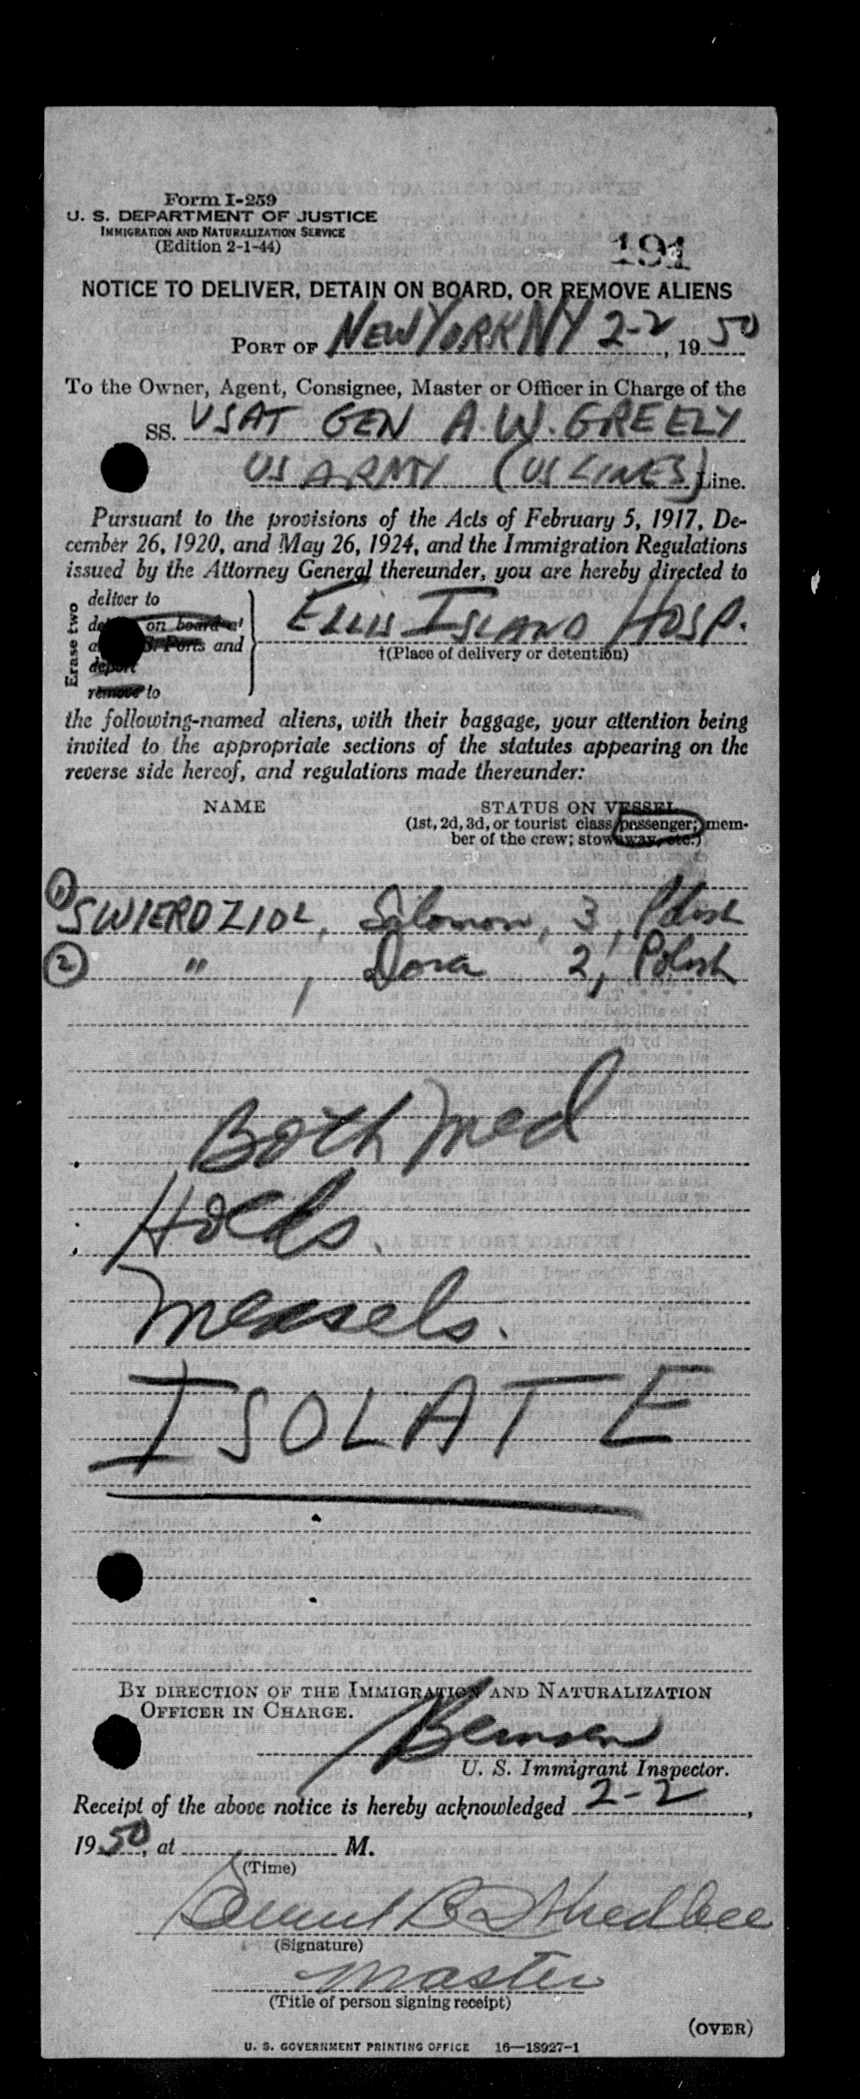 Form I-259
U. S. DEPARTMENT OF JUSTICE
IMMIGRATION AND NATURALIZATION SERVICE
(Edition 2-1-44)
191
NOTICE TO DELIVER, DETAIN ON BOARD, OR REMOVE ALIENS
PORT OF NEW YORK NY 2-2, 1950
To the Owner, Agent, Consignee, Master or Officer in Charge of the
SS. USAT GEN A.W. GREELY
US ARMY (US LINES) Line.
Pursuant to the provisions of the Acts of February 5, 1917, De-
cember 26, 1920, and May 26, 1924, and the Immigration Regulations
issued by the Attorney General thereunder, you are hereby directed to
Erase two
deliver to
on board at
Ports and
deport
remove to
ELLIS ISLAND HOSP.
†(Place of delivery or detention)
the following-named aliens, with their baggage, your attention being
invited to the appropriate sections of the statutes appearing on the
reverse side hereof, and regulations made thereunder:
NAME
STATUS ON VESSEL
(1st, 2d, 3d, or tourist class passenger; mem-
ber of the crew; stowaway, etc.)
(1) SWIERDZIOL, Salomon, 3, Polish
(2) " , Dora 2, Polish
Both Med
Holds.
Measels.
ISOLATE
BY DIRECTION OF THE IMMIGRATION AND NATURALIZATION
OFFICER IN CHARGE.
U. S. Immigrant Inspector.
Receipt of the above notice is hereby acknowledged 2-2,
1950, at M.
(Time)
(Signature)
Master
(Title of person signing receipt)
(OVER)
U. S. GOVERNMENT PRINTING OFFICE 16—18927-1